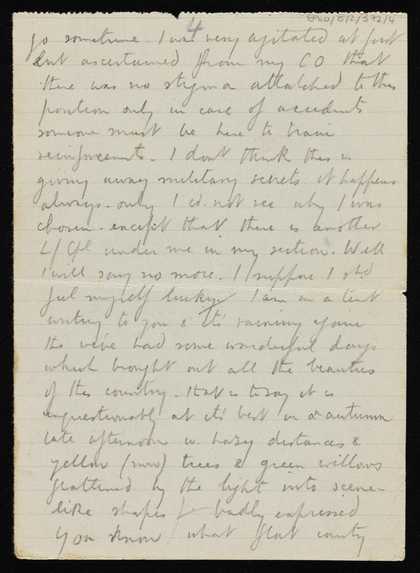 4
go sometime. I was very agitated at first
but ascertained from my CO that
there was no stigma attatched to this
position only in case of accidents
someone must be here to train
reinforcements. I dont think this is
giving away military secrets it happens
always. only I cd. not see why I was
chosen. except that there is another
L/Cpl under me in my section. Well
I will say no more. I suppose I shd
feel myself lucky. I am in a tent
writing to you & it's raining again
tho we've had some wonderful days
which brought out all the beauties
of this country. that is to say it is
unquestionably at it's best in autumn
late afternoons w. hazy distances &
yellow (now) trees & green willows
flattened by the light into scene-
like shapes / badly expressed
You know what flat country